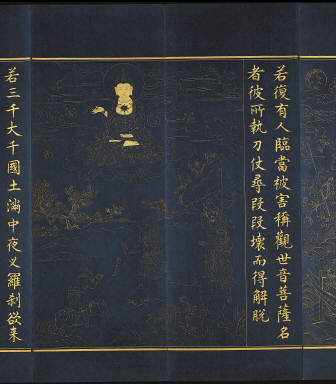 若復有人臨當被害稱觀世音菩薩名
者彼所執刀仗尋段段壞而得解脫
若三千大千國土滿中夜叉羅刹欲來